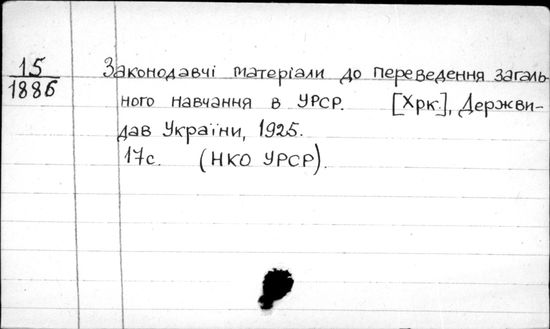 15
1886
Законодавчі матеріали до переведення загаль-
ного навчання в УРСР. [Хрк.], Держви-
дав України, 1925.
17с. (НКО УРСР).